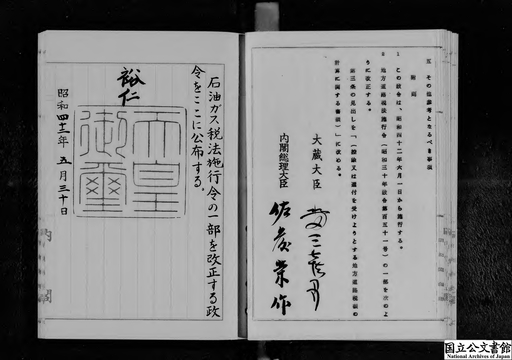 五 その他参考となるべき事項
附則
1 この政令は、昭和四十二年六月一日から施行する。
2 地方道路税法施行令（昭和三十年政令第百五十一号）の一部を次のよ
うに改正する。
第三条の見出しを「（控除又は還付を受けようとする地方道路税額の
計算に関する書類）」に改める。
大蔵大臣 水田三喜男
内閣総理大臣 佐藤榮作
石油ガス税法施行令の一部を改正する政
令をここに公布する。
裕仁
天皇御璽
昭和四十二年五月三十日
国立公文書館
National Archives of Japan